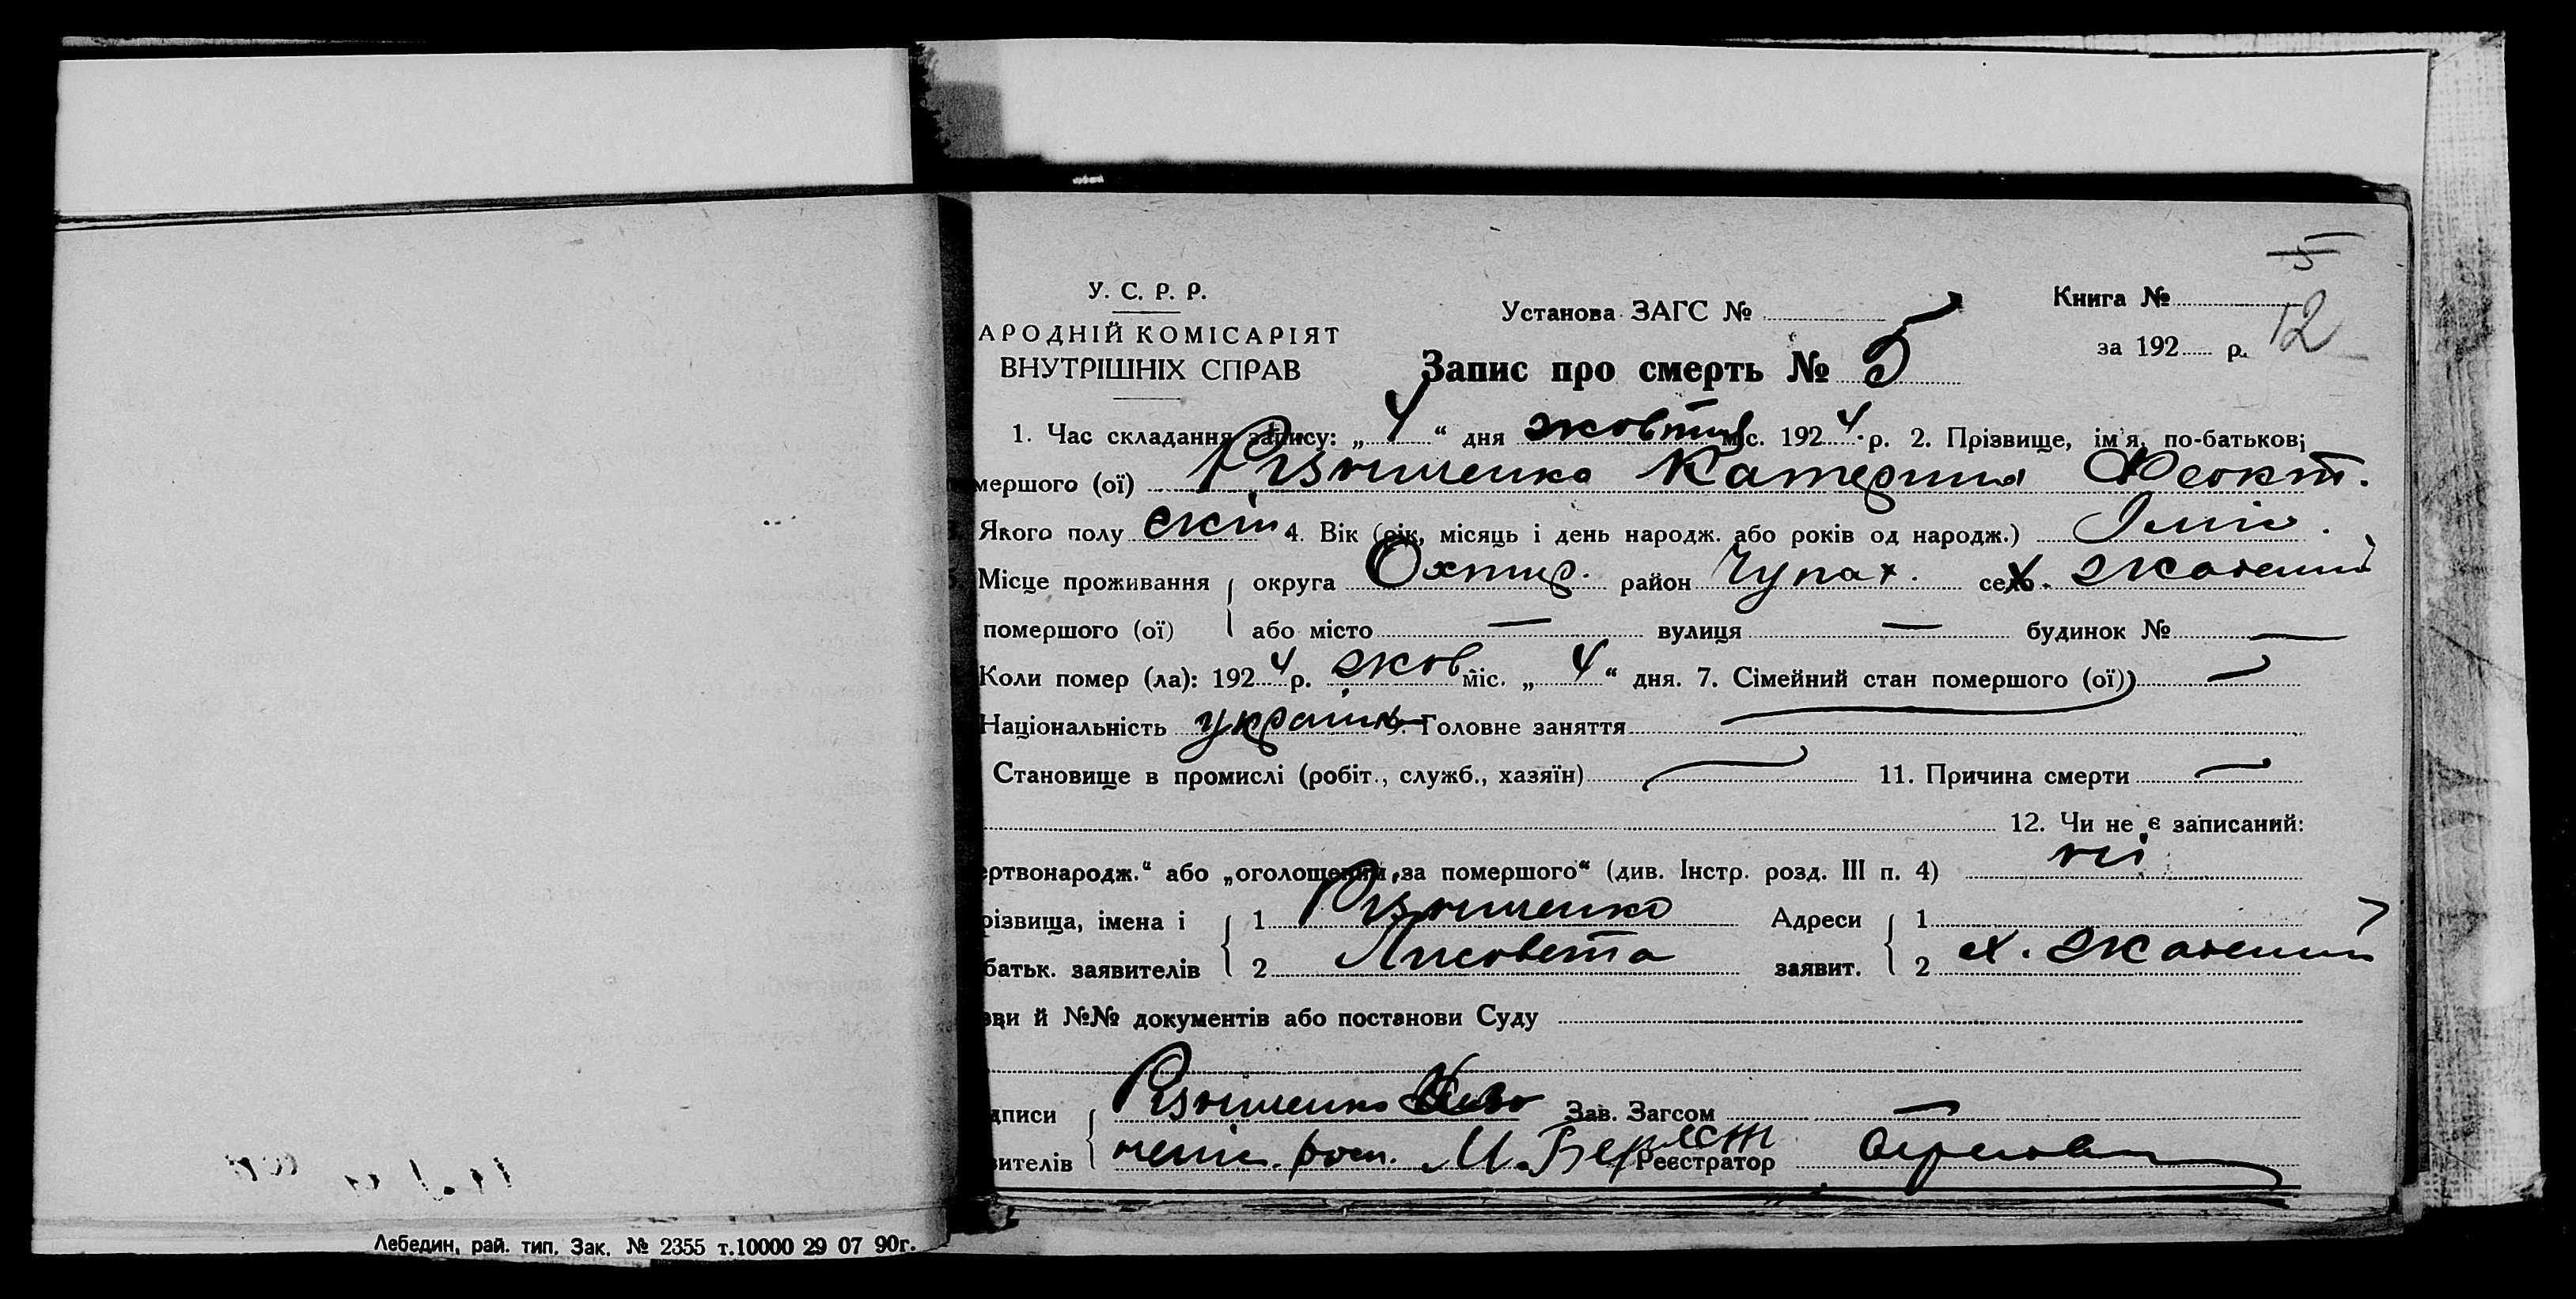 5
У. С. Р. Р.
АРОДНІЙ КОМІСАРІЯТ
ВНУТРІШНІХ СПРАВ
Установа ЗАГС №
Книга №
за 192 р.
12
Запис про смерть № 5
1. Час складання запису: „ 4 “ дня жовтня міс. 192 4 р. 2. Прізвище, ім'я, по-батькові
мершого (ої) Катерина Феокт.
Якого полу 4. Вік (рік, місяць і день народж. або років од народж.)
Місце проживання округа Охтир. район Чупах. село х.
помершого (ої) або місто — вулиця — будинок № —
Коли помер (ла): 192 4 р. жов міс. „ 4 “ дня. 7. Сімейний стан помершого (ої) —
Національність україн. 9. Головне заняття —
Становище в промислі (робіт., служб., хазяїн) — 11. Причина смерти —
12. Чи не є записаний:
ертвонародж.“ або „оголошений за померщого“ (див. Інстр. розд. III п. 4) ні
різвища, імена і 1 Адреси 1
батьк. заявителів 2 Лисовета заявит. 2 х.
зви й №№ документів або постанови Суду
дписи Зав. Загсом —
вителів М. Реєстратор
Лебедин, рай. тип. Зак. № 2355 т.10000 29 07 90г.